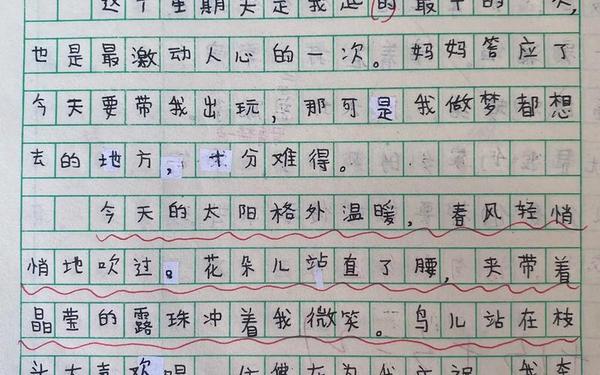 这个星期天是我起的最早的一次，
也是最激动人心的一次。妈妈答应了
今天要带我出玩，那可是我做梦都想
去的地方，十分难得。
今天的太阳格外温暖，春风轻悄
悄地吹过。花朵儿站直了腰，夹带着
晶莹的露珠冲着我微笑。鸟儿站在枝
头大喜欢唱